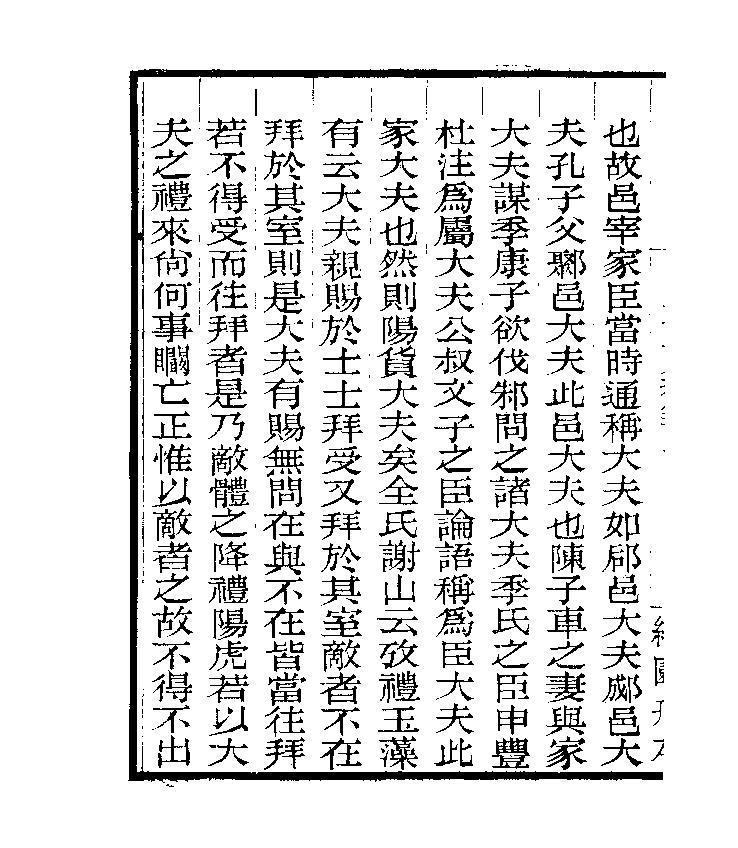 也故邑宰家臣當時通稱大夫如郈邑大夫郕邑大
夫孔子父鄹邑大夫此邑大夫也陳子車之妻與家
大夫謀季康子欲伐邾問之諸大夫季氏之臣申豐
杜注爲屬大夫公叔文子之臣論語稱爲臣大夫此
家大夫也然則陽貨大夫矣全氏謝山云攷禮玉藻
有云大夫親賜於士士拜受又拜於其室敵者不在
拜於其室則是大夫有賜無問在與不在皆當往拜
若不得受而往拜者是乃敵體之降禮陽虎若以大
夫之禮來尙何事瞷亡正惟以敵者之故不得不出